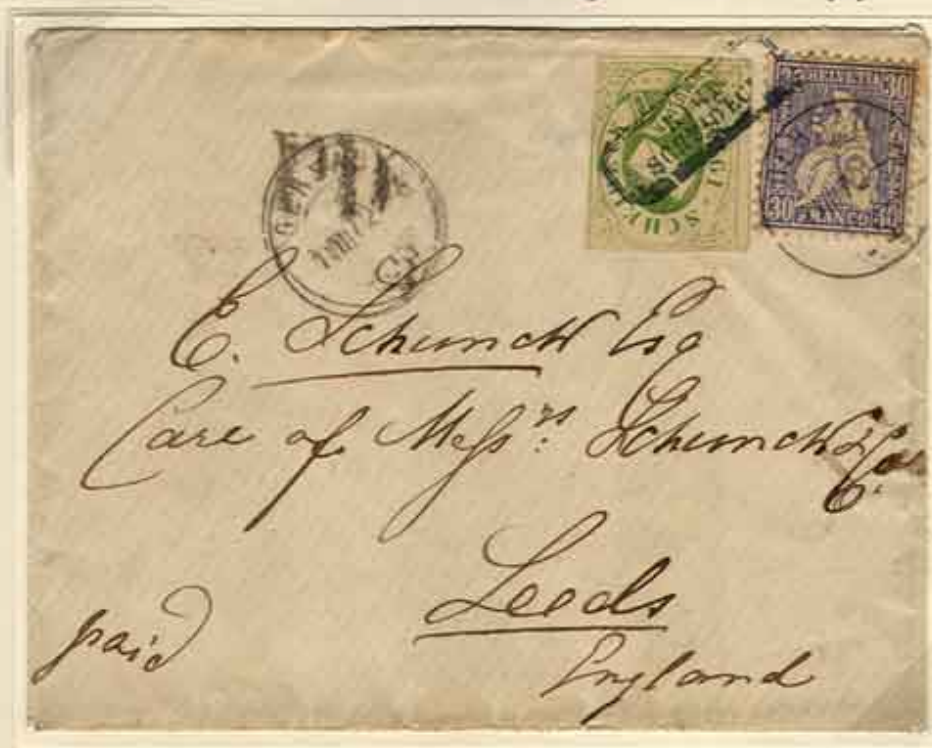 HELVETIA
30
30 FRANCO 30
E. Schunck Esq
Care of Mess.rs Schunck & Co.
Leeds
England
paid